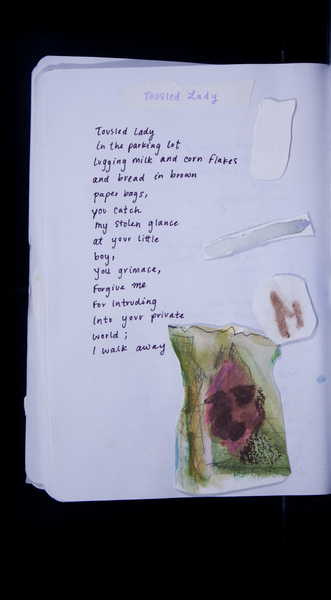 Tousled Lady
Tousled Lady
in the parking lot
lugging milk and corn flakes
and bread in brown
paper bags,
you catch
my stolen glance
at your little
boy,
you grimace,
Forgive me
For intruding
Into your private
world ;
I walk away
M